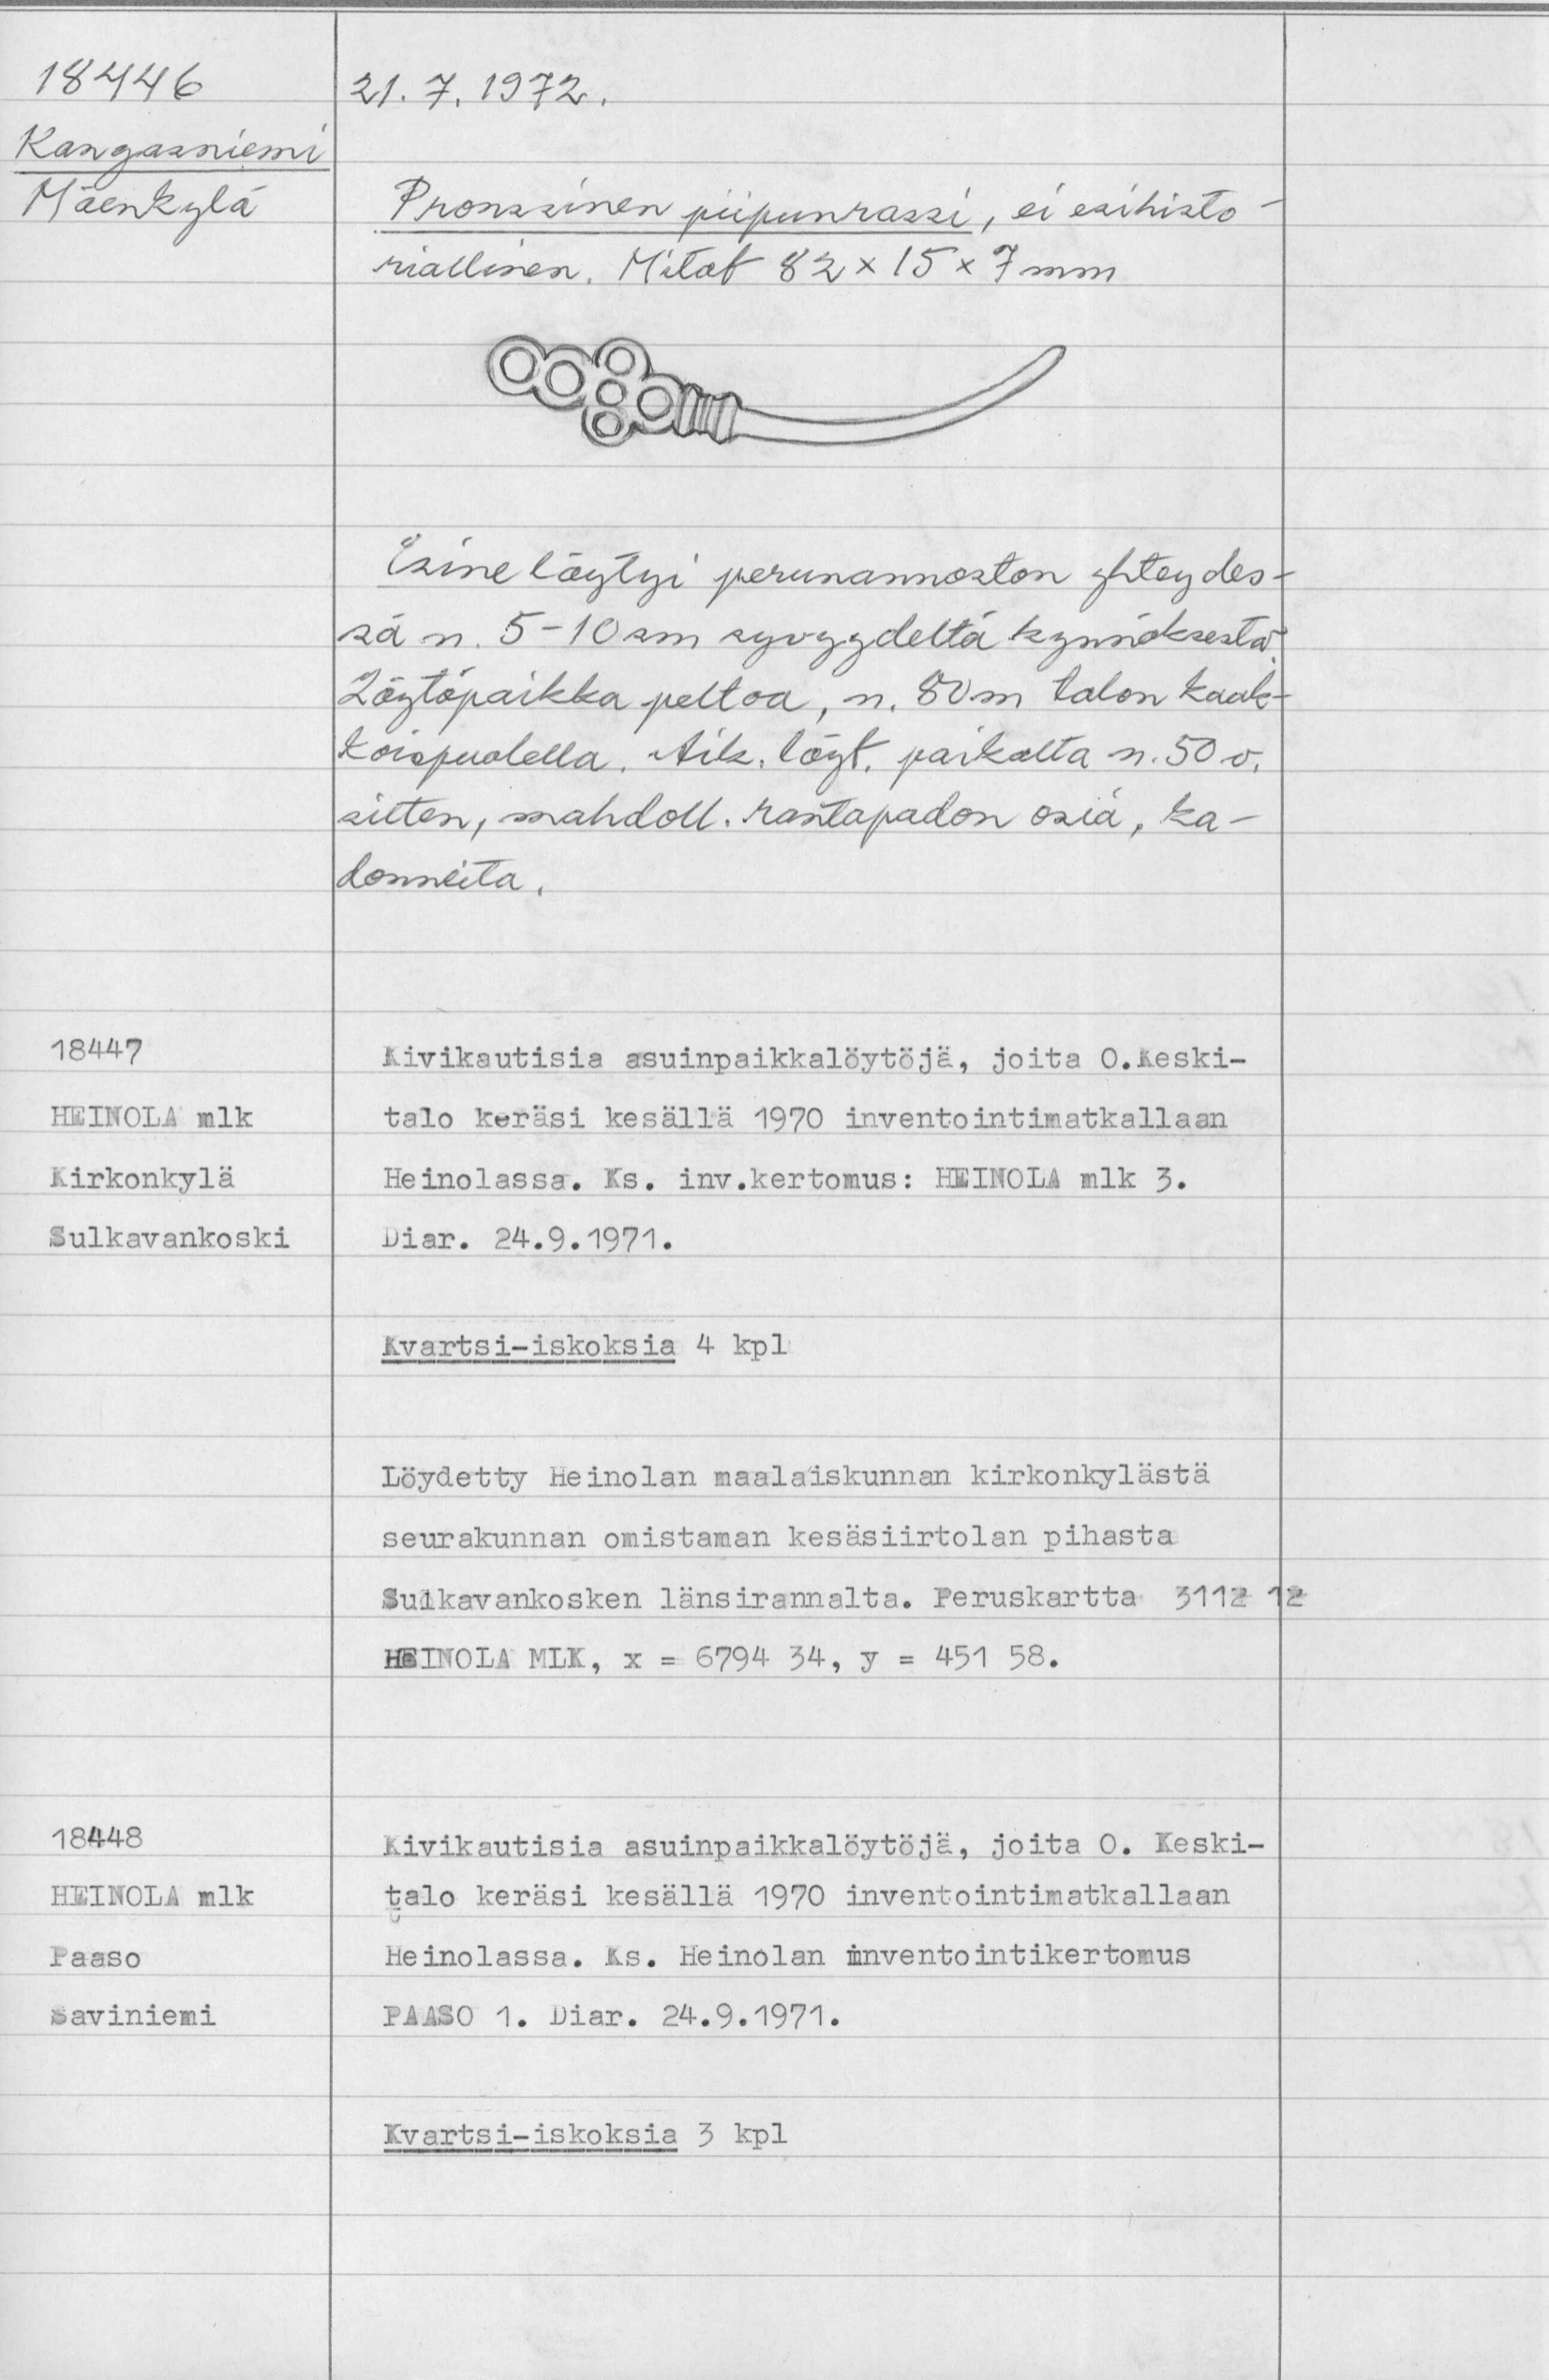 18446
Kangasniemi
Mäenkylä
21.7.1972.
Pronssinen piipunrassi, ei esihisto-
riallinen. Mitat 82 x 15 x 7 mm
Esine löytyi perunannoston yhteydes-
sä n. 5-10 sm syvyydeltä kynnöksestä.
Löytöpaikka peltoa, n. 80 m talon kaak-
koispuolella. Aik. löyt. paikalta n. 50 v.
sitten, mahdoll. rautapadon osia, ka-
donneita.
18447
HEINOLA mlk
Kirkonkylä
Sulkavankoski
Kivikautisia asuinpaikkalöytöjä, joita O.Keski-
talo keräsi kesällä 1970 inventointimatkallaan
Heinolassa. Ks. inv.kertomus: HEINOLA mlk 3.
Diar. 24.9.1971.
Kvartsi-iskoksia 4 kpl
Löydetty Heinolan maalaiskunnan kirkonkylästä
seurakunnan omistaman kesäsiirtolan pihasta
Sulkavankosken länsirannalta. Peruskartta 3112 12
HEINOLA MLK, x = 6794 34, y = 451 58.
18448
HEINOLA mlk
Paaso
Saviniemi
Kivikautisia asuinpaikkalöytöjä, joita O. Keski-
talo keräsi kesällä 1970 inventointimatkallaan
Heinolassa. Ks. Heinolan inventointikertomus
PAASO 1. Diar. 24.9.1971.
Kvartsi-iskoksia 3 kpl